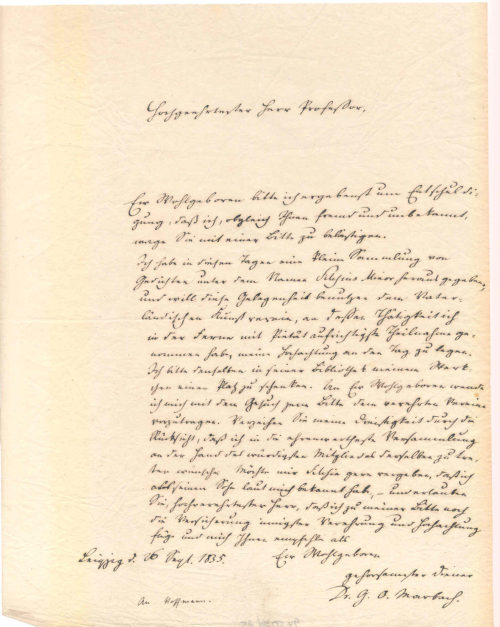 Hochgeehrtester Herr Professor,
Ew Wohlgeboren bitte ich ergebenst um Entschuldi-
gung, daß ich, obgleich Ihnen fremd und unbekannt,
wage Sie mit einer Bitte zu belästigen.
Ich habe in diesen Tagen eine kleine Sammlung von
Gedichten unter dem Namen Silesius Minor herausgegeben,
und will diese Gelegenheit benutzen dem Vater-
ländischen Kunstverein, an dessen Thätigkeit ich
in der Ferne mit Pietät aufrichtigste Theilnahme ge-
nommen habe, meine Hochachtung an den Tag zu legen.
Ich bitte denselben in seiner Bibliothek meinem Werk-
chen einen Platz zu schenken. An Ew Wohlgeboren wende
ich mich mit dem Gesuch diese Bitte dem verehrten Vereine
vorzutragen. Verzeihen Sie meine Dreistigkeit durch die
Rücksicht, daß ich in die ehrenwertheste Versammlung
an der Hand des würdigsten Mitgliedes derselben zu tre-
ten wünsche. Möchte mir Silesius gern vergeben, daß ich
als seinen Sohn laut mich bekannt habe, – und erlauben
Sie, hochverehrtester Herr, daß ich zu meiner Bitte noch
die Versicherung innigster Verehrung und Hochachtung
füge und mich Ihnen empfehle als
Leipzig d. 26 Sept. 1835. Ew Wohlgeboren
gehorsamster Diener
Dr. G. O. Marbach.
An Hoffmann.